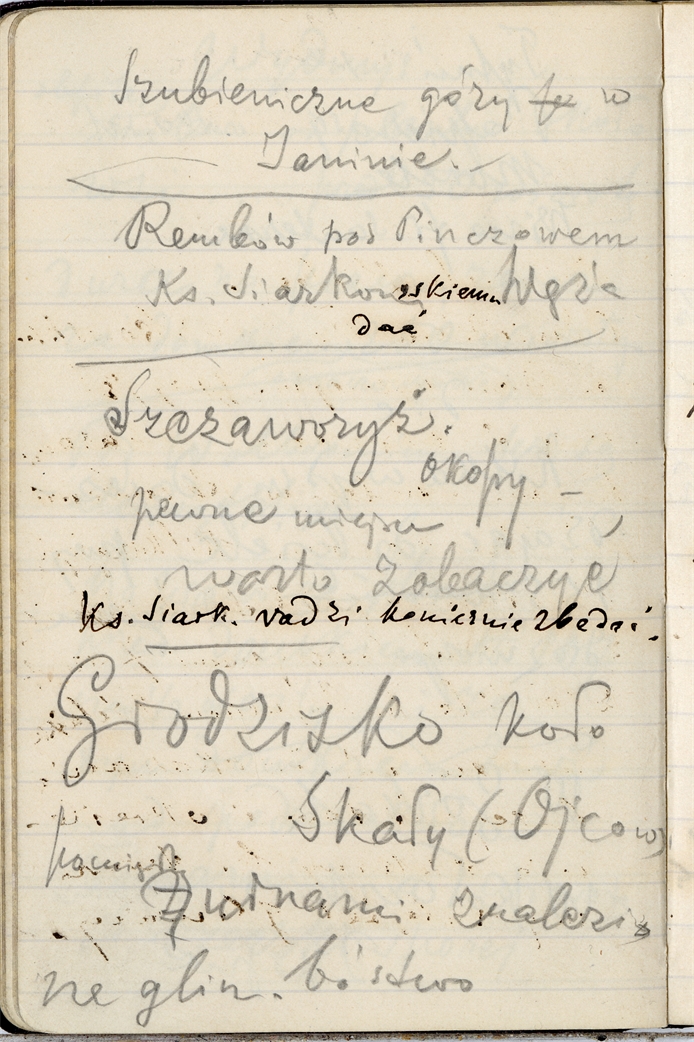 Szubieniczne góry w
Janinie.-
Rembów pod Pinczowem
Ks. Siarkowskiemu Węża
dać
Szczaworyż.
okopy -
pewne miejsca
warto zobaczyć
Ks. Siark. radzi koniecznie zbadać.
Grodzisko koło
Skały (Ojcow)
pomiędzy
ruinami znalezio
ne glin. bóstwo